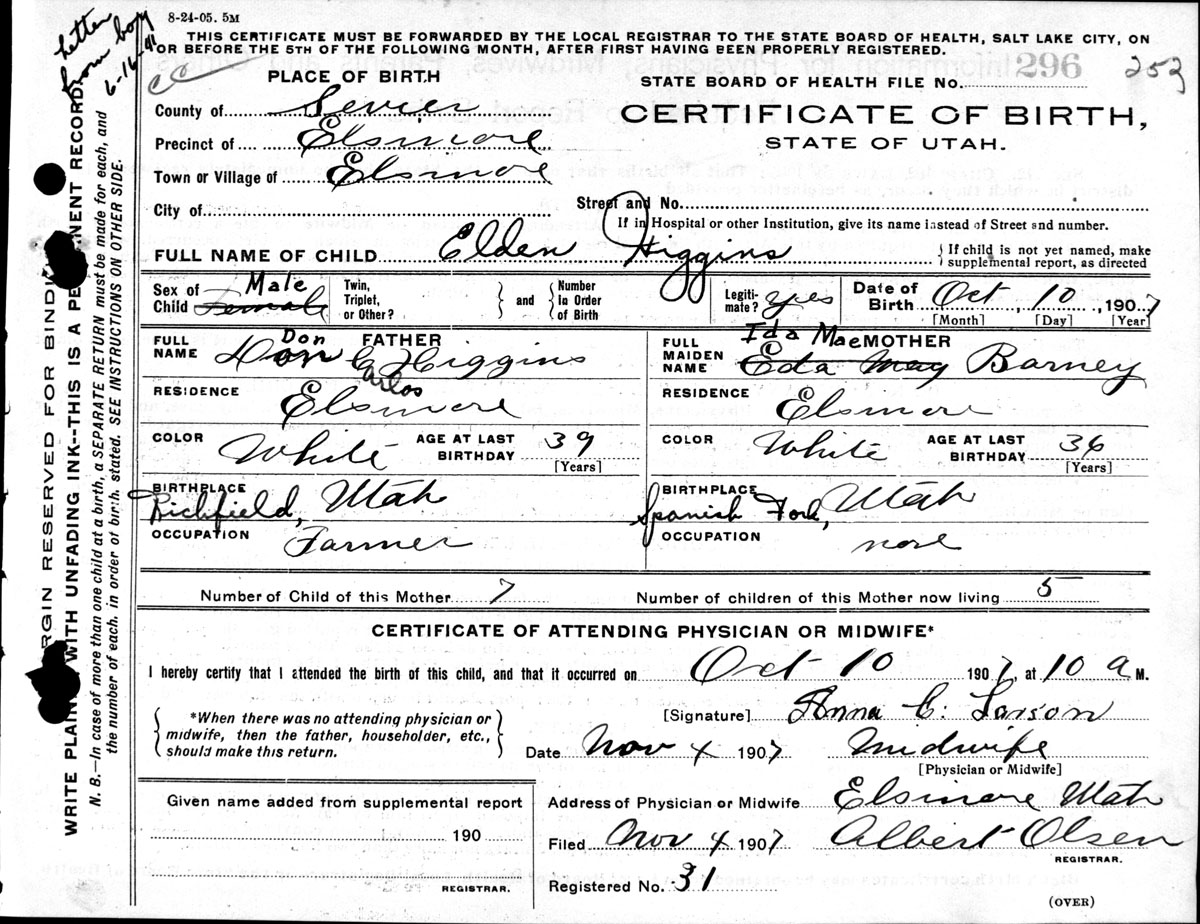 8-24-05. 5M
Letter
from boy
6-16-41
THIS CERTIFICATE MUST BE FORWARDED BY THE LOCAL REGISTRAR TO THE STATE BOARD OF HEALTH, SALT LAKE CITY, ON
OR BEFORE THE 5TH OF THE FOLLOWING MONTH, AFTER FIRST HAVING BEEN PROPERLY REGISTERED.
PLACE OF BIRTH
STATE BOARD OF HEALTH FILE NO.
296
253
County of Sevier
CERTIFICATE OF BIRTH,
Precinct of Elsmore
STATE OF UTAH.
Town or Village of Elsmore
City of
Street and No.
If in Hospital or other Institution, give its name instead of Street and number.
FULL NAME OF CHILD Elden Higgins
{If child is not yet named, make
supplemental report, as directed
Sex of Child Male Female
Twin, Triplet, or Other?
} and {
Number In Order of Birth
Legiti- mate? yes
Date of Birth Oct 10, 1907
[Month] [Day] [Year]
FATHER
FULL NAME Don Don C Higgins
Carlos
MOTHER
FULL MAIDEN NAME Ida Mae Eda May Barney
RESIDENCE Elsmore
RESIDENCE Elsmore
COLOR White AGE AT LAST BIRTHDAY 39 [Years]
COLOR White AGE AT LAST BIRTHDAY 36 [Years]
BIRTHPLACE Richfield, Utah
BIRTHPLACE Spanish Fork, Utah
OCCUPATION Farmer
OCCUPATION none
Number of Child of this Mother 7
Number of children of this Mother now living 5
CERTIFICATE OF ATTENDING PHYSICIAN OR MIDWIFE*
I hereby certify that I attended the birth of this child, and that it occurred on Oct 10 1907, at 10 a M.
{*When there was no attending physician or
midwife, then the father, householder, etc.,
should make this return.}
[Signature] Anna C. Larson
Date Nov 4 1907 Midwife
[Physician or Midwife]
Given name added from supplemental report
190
REGISTRAR.
Address of Physician or Midwife Elsinore Utah
Filed Nov 4 1907 Albert Olsen
REGISTRAR.
Registered No. 31
(OVER)
RGIN RESERVED FOR BINDI
WRITE PLAIN WITH UNFADING INK--THIS IS A PE NENT RECORD.
N. B.—In case of more than one child at a birth, a SEPARATE RETURN must be made for each, and
the number of each, in order of birth, stated. SEE INSTRUCTIONS ON OTHER SIDE.